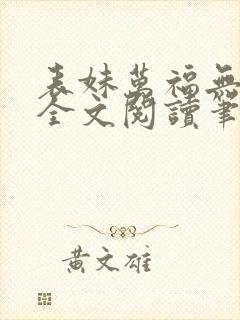 表妹萬福無
全文閱讀筆
黃文雄